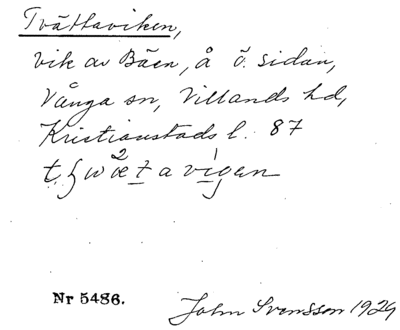 Tvättaviken,
vik av Bäen, å ö. sidan,
Vånga sn, Villands hd,
Kristianstads l. 87
Nr 5486.
John Svensson 1924